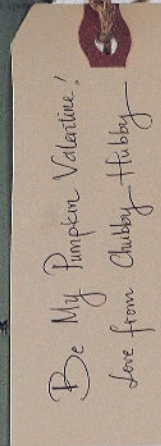 Be My Pumpkin Valentine!
Love from Chubby Hubby